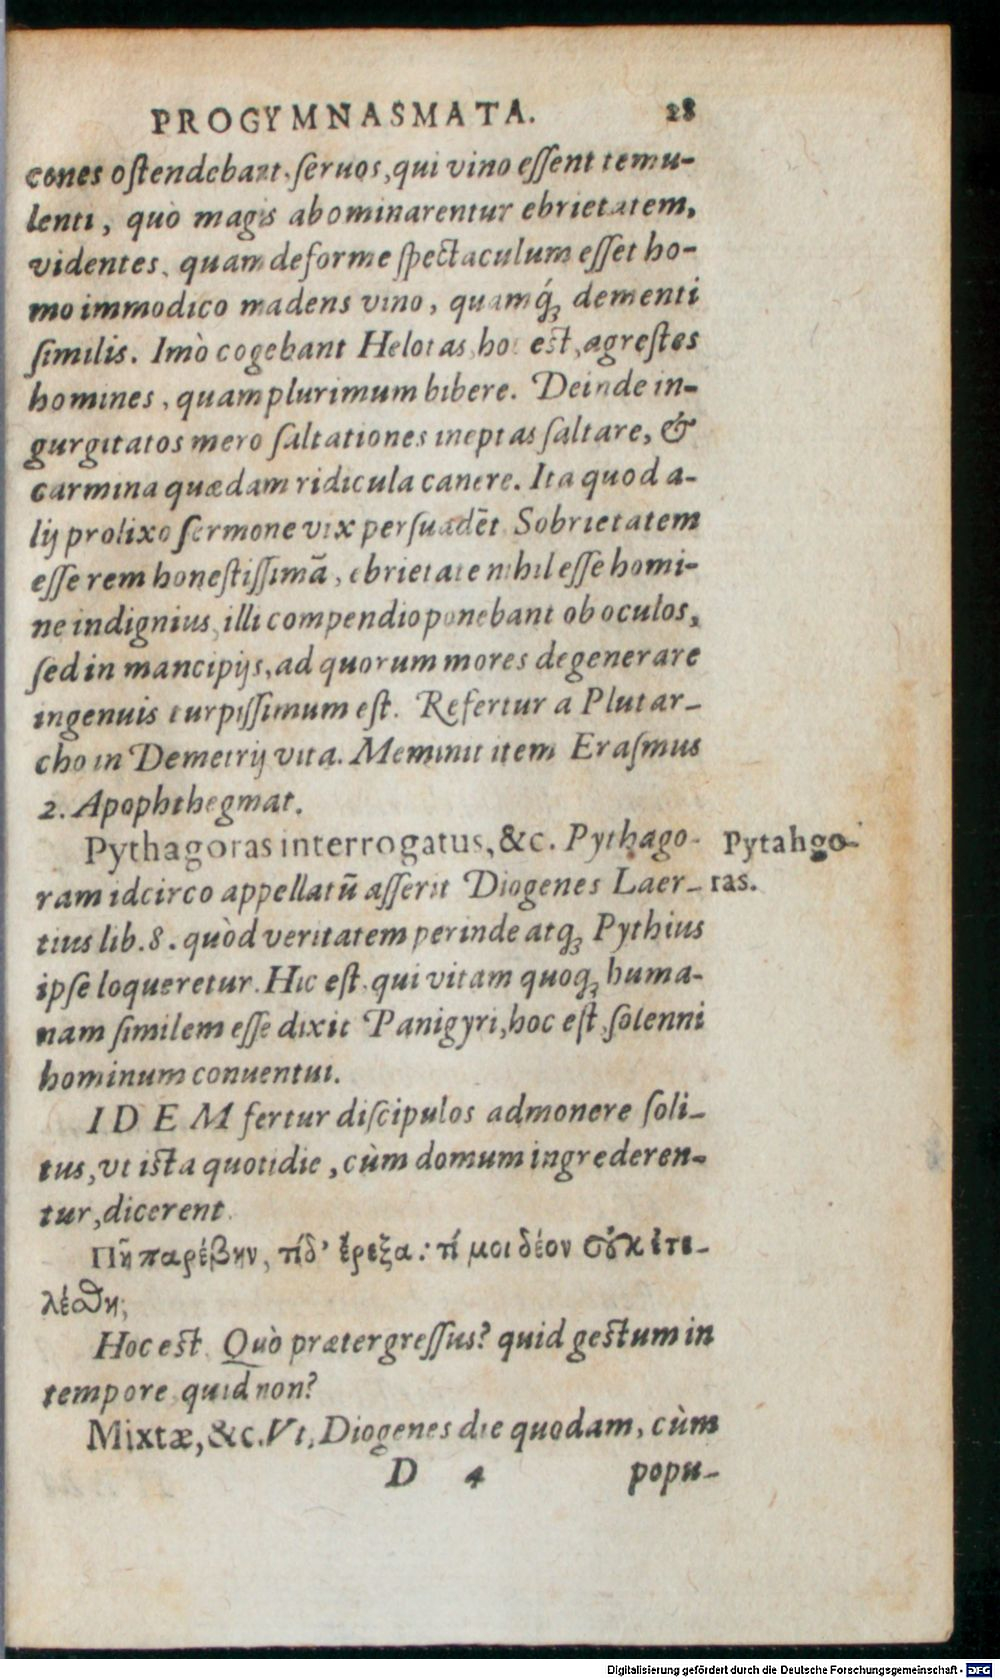 PROGYMNASMATA. 28
cones ostendebant, seruos, qui vino essent temu-
lenti, quò magis abominarentur ebrietatem,
videntes, quam deforme spectaculum esset ho-
mo immodico madens vino, quamq́; dementi
similis. Imò cogebant Helotas, hoc est, agrestes
homines, quam plurimum bibere. Deinde in-
gurgitatos mero saltationes ineptas saltare, &
carmina quædam ridicula canere. Ita quod a-
lij prolixo sermone vix persuadēt, Sobrietatem
esse rem honestissimā, ebrietate nihil esse homi-
ne indignius, illi compendio ponebant ob oculos,
sed in mancipijs, ad quorum mores degenerare
ingenuis turpissimum est. Refertur a Plutar-
cho in Demetrij vita. Meminit item Erasmus
2. Apophthegmat.
Pythagoras interrogatus, &c. Pythago-
ram idcirco appellatū asserit Diogenes Laer-
tius lib. 8. quòd veritatem perinde atq; Pythius
ipse loqueretur. Hic est, qui vitam quoq; huma-
nam similem esse dixit Panigyri, hoc est, solenni
hominum conuentui.
Pytahgo-
ras.
IDEM fertur discipulos admonere soli-
tus, vt ista quotidie, cùm domum ingrederen-
tur, dicerent.
Πῆ παρέβην, τίδ' ἔρεξα: τί μοι δέον οὐκ ἐτε-
λέσθη;
Hoc est. Quò prætergressus? quid gestum in
tempore quid non?
Mixtæ, &c. Vt, Diogenes die quodam, cùm
D 4 popu-
Digitalisierung gefördert durch die Deutsche Forschungsgemeinschaft - DFG